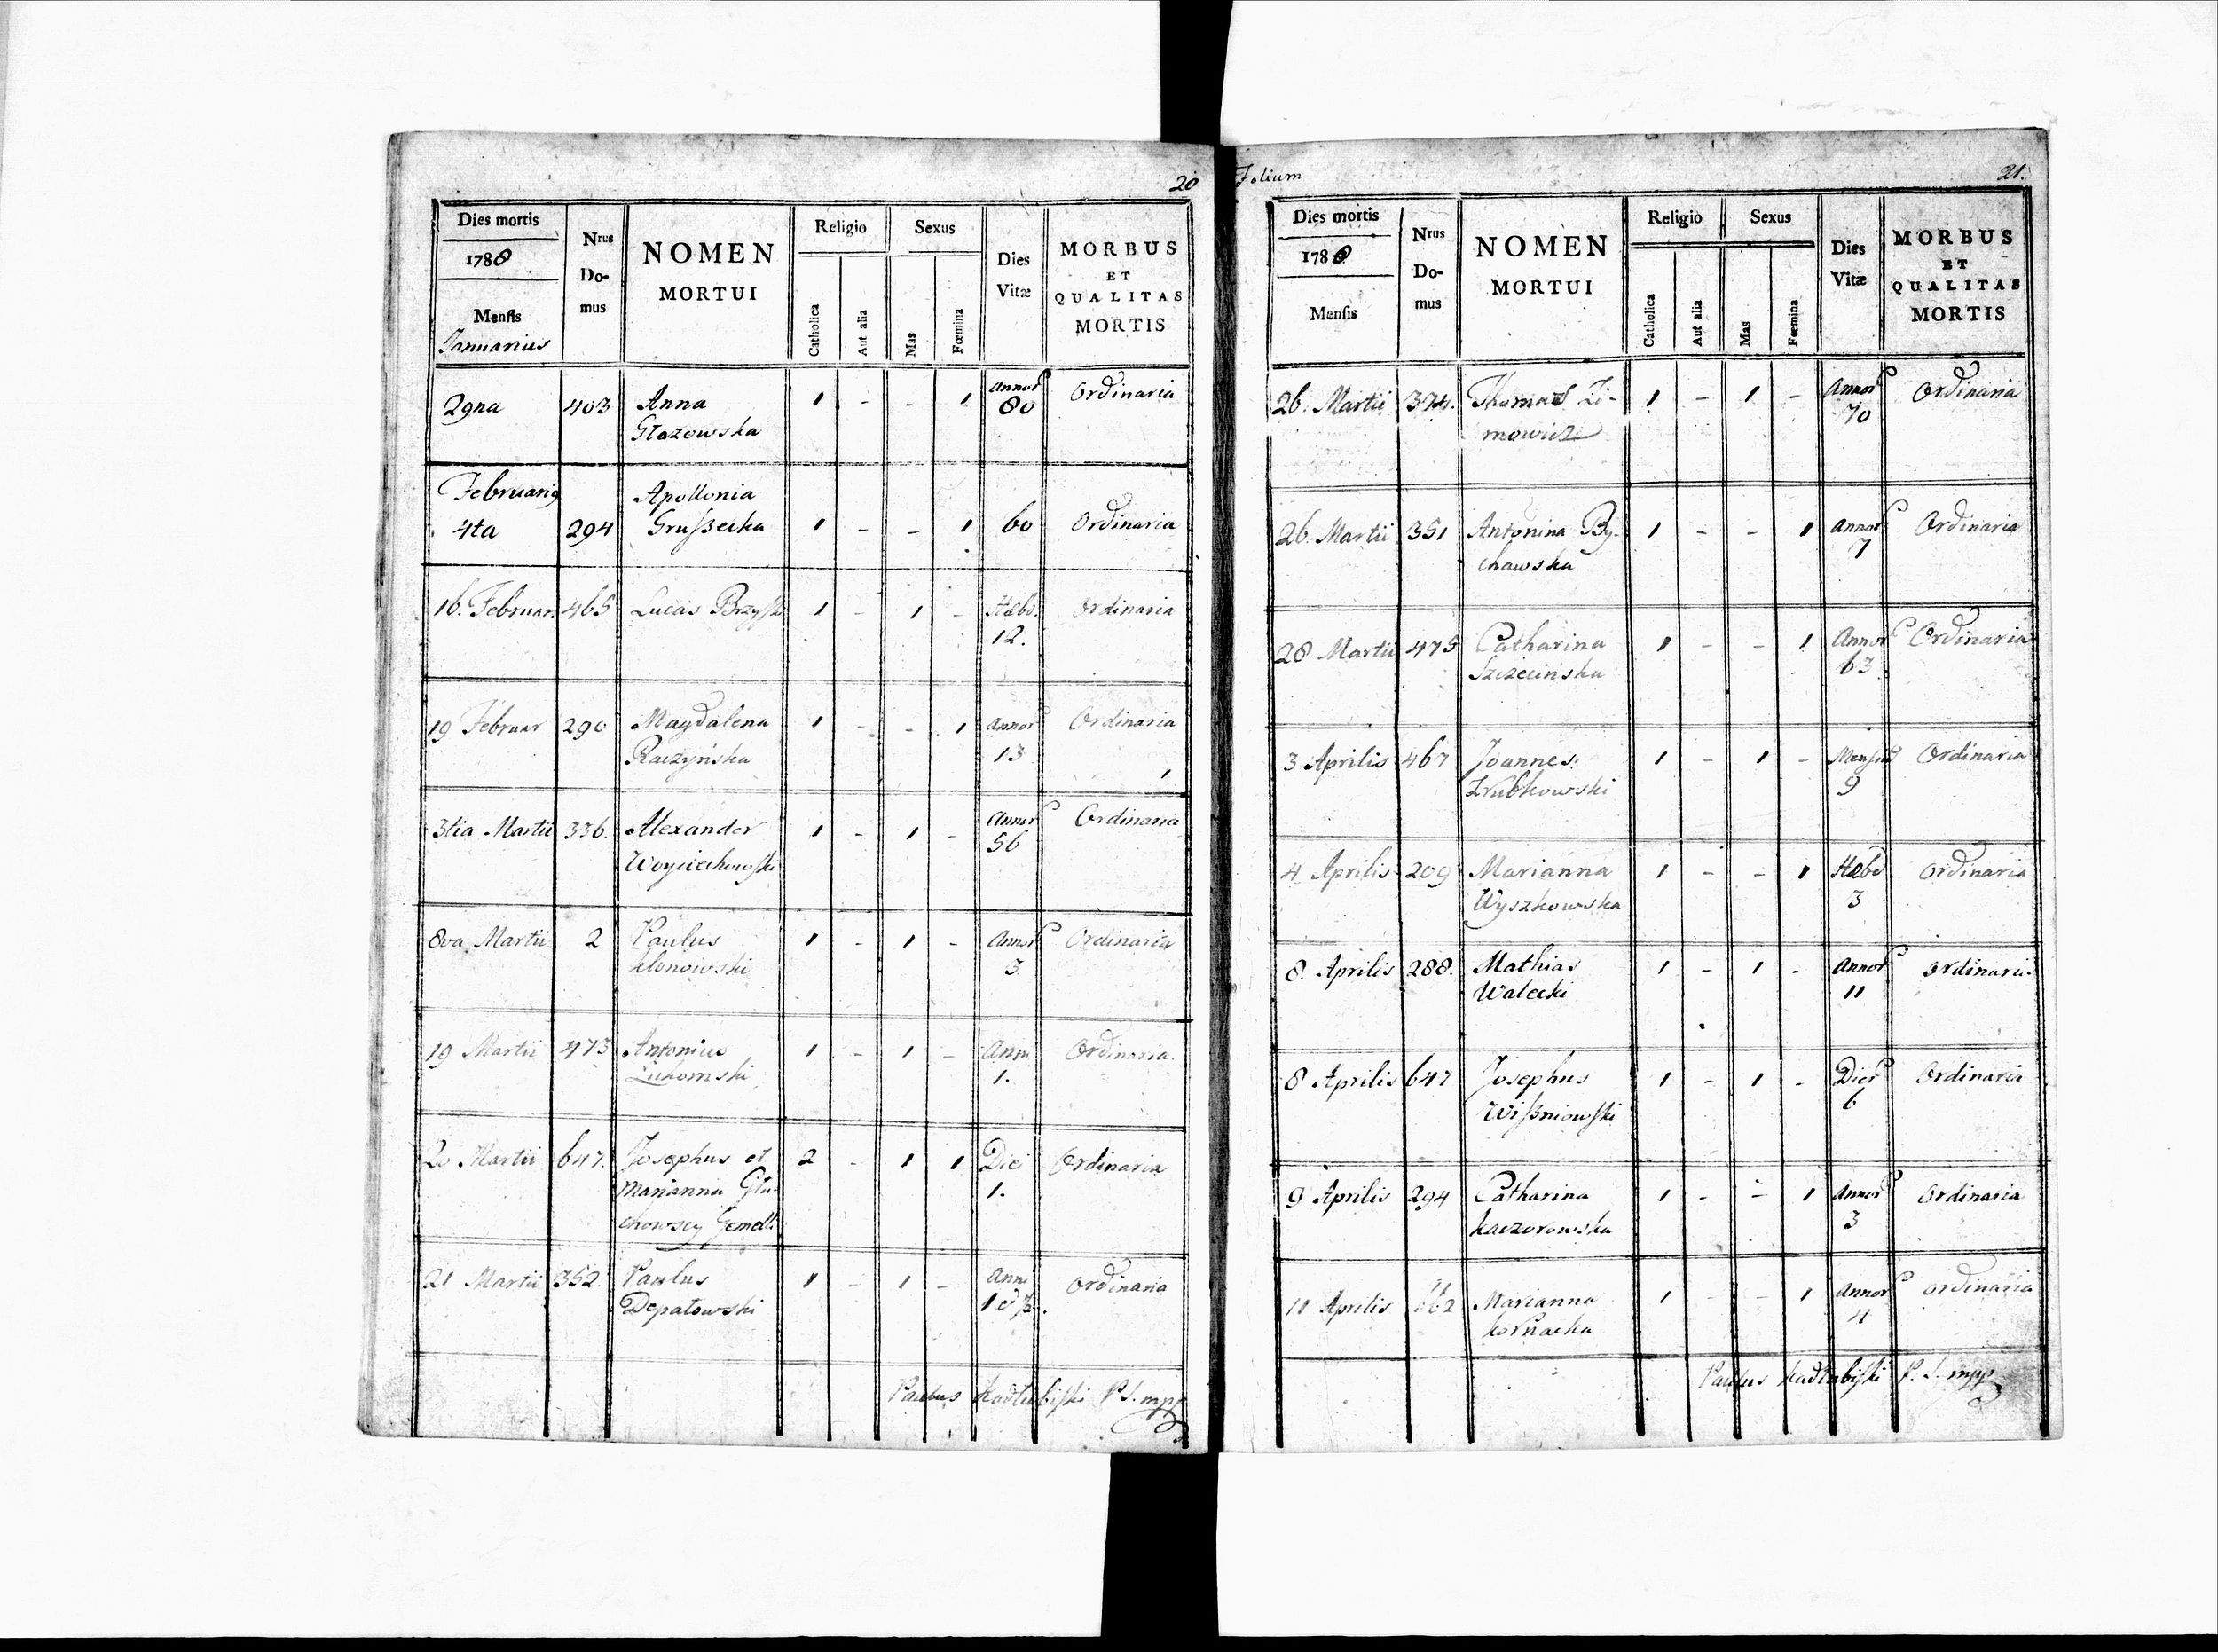 20
Dies mortis
1788
Mensis
Januarius
Nrus
Do-
mus
NOMEN
MORTUI
Religio
Catholica
Aut alia
Sexus
Mas
Fœmina
Dies
Vitæ
MORBUS
ET
QUALITAS
MORTIS
29na 403 Anna 1 - - 1 Annor 80 Ordinaria
Głozowska
Februarij Apollonia
4ta 294 Grußecka 1 - - 1 60 Ordinaria
16. Februar. 465 Lucas Brzyski 1 - 1 - Hebd. Ordinaria
12.
19 Februar 290 Magdalena 1 - - 1 Annor Ordinaria
Raczyńska 13
3tia Martii 336. Alexander 1 - 1 - Annor Ordinaria
Woyciechowski 56
8va Martii 2 Paulus 1 - 1 - Annor Ordinaria
klonowski 3.
19 Martii 473 Antonius 1 - 1 - Anni Ordinaria
Łukomski 1.
20 Martii 647. Josephus et 2 - 1 1 Diei Ordinaria
Marianna Głu- 1.
chowscy Gemelli
21 Martii 352. Paulus 1 - 1 - Anni Ordinaria
Depatowski
Paulus Kadłubiski P. S. mpp
Folium 21.
Dies mortis
1788
Mensis
Nrus
Do-
mus
NOMEN
MORTUI
Religio
Catholica
Aut alia
Sexus
Mas
Fœmina
Dies
Vitæ
MORBUS
ET
QUALITAS
MORTIS
26. Martii 374. Thomas Zi- 1 - 1 - Annor Ordinaria
mowicz 70
26. Martii 351 Antonina By- 1 - - 1 Annor Ordinaria
chawska 7
28 Martii 475 Catharina 1 - - 1 Annor Ordinaria
Szczecińska 63
3 Aprilis 467 Joannes 1 - 1 - Mensium Ordinaria
Zrubkowski 9
4 Aprilis 209 Marianna 1 - - 1 Hebd. Ordinaria
Wyszkowska 3
8. Aprilis 288. Mathias 1 - 1 - Annor Ordinaria
Walecki 11
8 Aprilis 647 Josephus 1 - 1 - Dier Ordinaria
Wißniowski 6
9 Aprilis 294 Catharina 1 - - 1 Annor Ordinaria
kaczorowska 3
11 Aprilis Marianna 1 - - 1 Annor Ordinaria
kornacka 4
Paulus Kadłubiski P. S. mpp